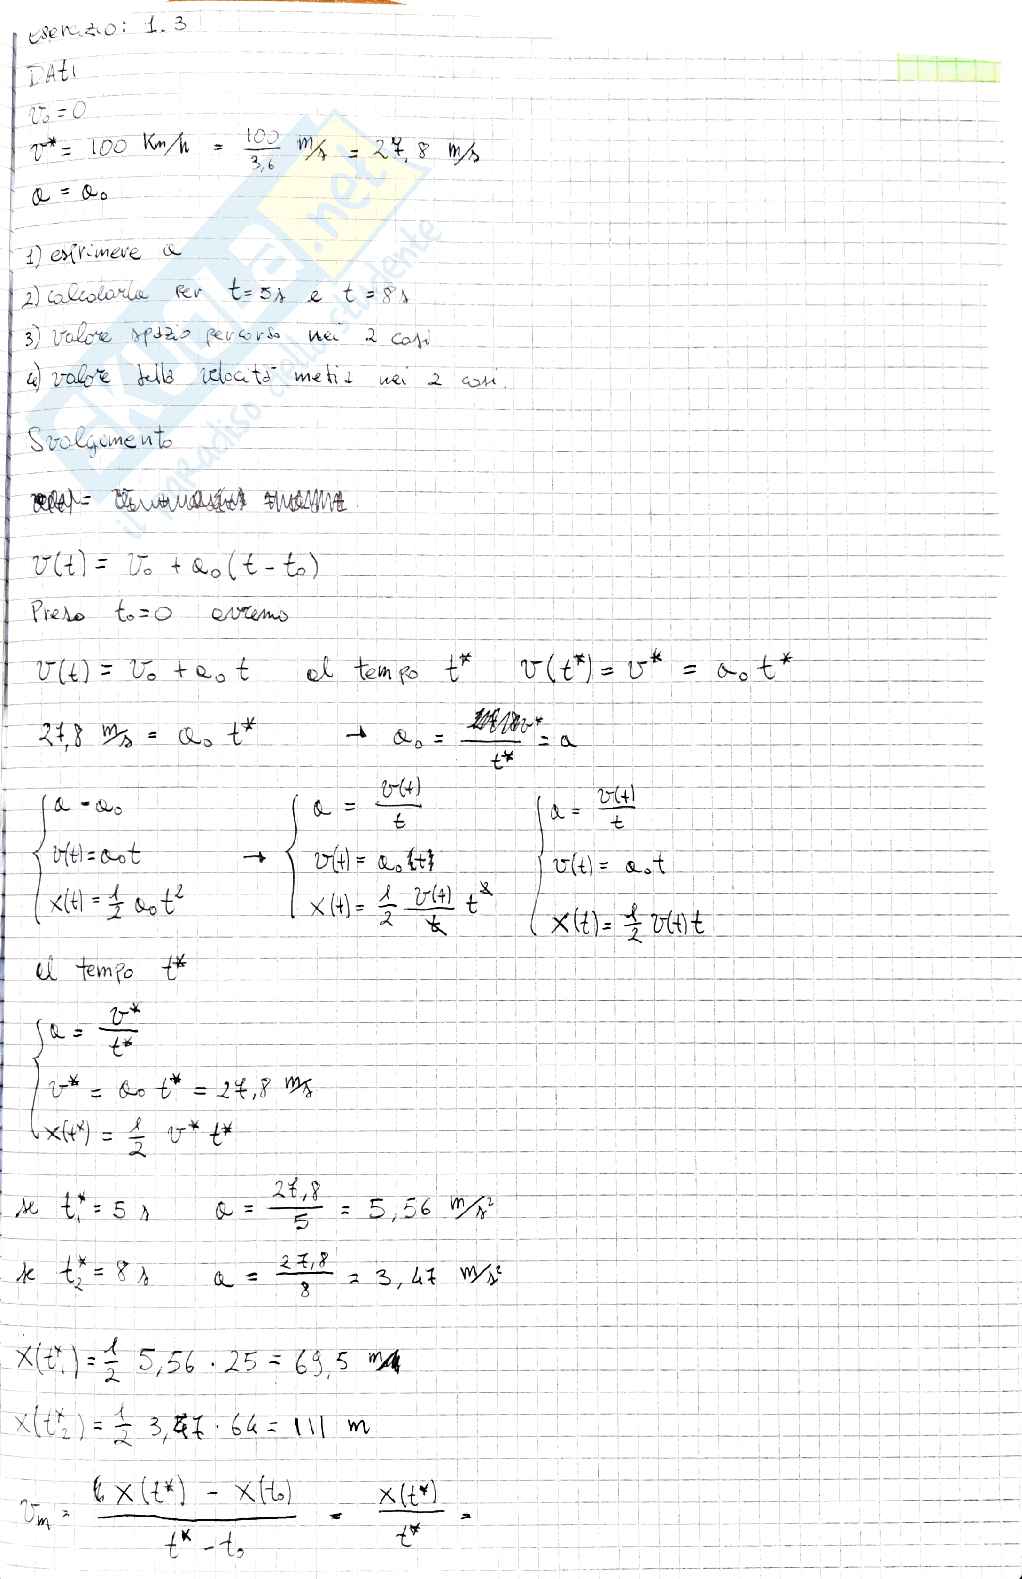 esercizio: 1.3
DATI
v₀ = 0
v* = 100 Km/h = 100/3,6 m/s = 27,8 m/s
a = a₀
1) esprimere a
2) calcolarla per t = 5s e t = 8s
3) valore spazio percorso nei 2 casi
4) valore della velocità media nei 2 casi.
Svolgimento
v(t) = v₀ + a₀(t - t₀)
Preso t₀ = 0 avremo
v(t) = v₀ + a₀t al tempo t* v(t*) = v* = a₀ t*
27,8 m/s = a₀ t* → a₀ = v*/t* = a
{ a = a₀ → { a = v(t)/t { a = v(t)/t
v(t) = a₀t v(t) = a₀ t v(t) = a₀t
x(t) = 1/2 a₀t² x(t) = 1/2 v(t)/t t² x(t) = 1/2 v(t)t
al tempo t*
{ a = v*/t*
v* = a₀ t* = 27,8 m/s
x(t*) = 1/2 v* t*
se t₁* = 5 s a = 27,8/5 = 5,56 m/s²
se t₂* = 8 s a = 27,8/8 = 3,47 m/s²
x(t₁*) = 1/2 5,56 · 25 = 69,5 m
x(t₂*) = 1/2 3,47 · 64 = 111 m
vₘ = x(t*) - x(t₀)/t* - t₀ = x(t*)/t* =
SKUOLA.net
il paradiso dello studente